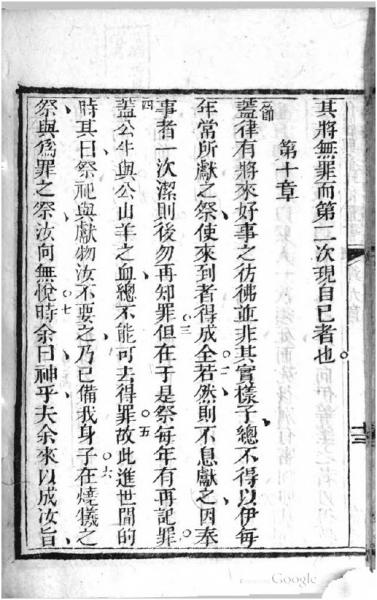 其將無罪而第二次現自已者也。
第十章
一節蓋律有將來好事之彷彿並非其實樣子總不得以伊每
年當所獻之祭使來到者得成全○二若然則不息獻之因奉
事者一次潔則後勿再知罪○三但在于是祭每年有再記罪○
四蓋公牛與公山羊之血總不能可去得罪○五故此進世間的
時其曰祭祀與獻物汝不要之乃已備我身子○六在燒犧之
祭與爲罪之祭汝何無悅時○七余曰神乎夫余來以成汝旨
Google